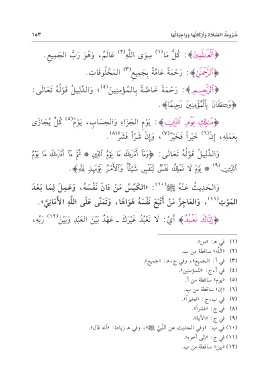 شُرُوطُ الصَّلَاةِ وَأَرْكَانُهَا وَوَاجِبَاتُهَا ١٥٣
﴿الْعَالَمِينَ﴾: كُلُّ مَا(١) سِوَى اللَّهِ(٢) عَالَمٌ، وَهُوَ رَبُّ الجَمِيعِ.
﴿الرَّحْمَنِ﴾: رَحْمَةً عَامَّةً بِجَمِيعِ(٣) المَخْلُوقَاتِ.
﴿الرَّحِيمِ﴾: رَحْمَةً خَاصَّةً بِالمُؤْمِنِينَ(٤)، وَالدَّلِيلُ قَوْلُهُ تَعَالَى:
﴿وَكَانَ بِالْمُؤْمِنِينَ رَحِيمًا﴾.
﴿مَالِكِ يَوْمِ الدِّينِ﴾: يَوْمِ الجَزَاءِ وَالحِسَابِ، يَوْمَ(٥) كُلٌّ يُجَازَى
بِعَمَلِهِ، إِنْ(٦) خَيْرًا فَخَيْرٌ(٧)، وَإِنْ شَرًّا فَشَرٌّ(٨).
وَالدَّلِيلُ قَوْلُهُ تَعَالَى: ﴿وَمَا أَدْرَاكَ مَا يَوْمُ الدِّينِ * ثُمَّ مَا أَدْرَاكَ مَا يَوْمُ
الدِّينِ(٩) * يَوْمَ لَا تَمْلِكُ نَفْسٌ لِنَفْسٍ شَيْئًا وَالْأَمْرُ يَوْمَئِذٍ لِلَّهِ﴾.
وَالحَدِيثُ عَنْهُ ﷺ(١٠): «الكَيِّسُ مَنْ دَانَ نَفْسَهُ، وَعَمِلَ لِمَا بَعْدَ
المَوْتِ(١١)، وَالعَاجِزُ مَنْ أَتْبَعَ نَفْسَهُ هَوَاهَا، وَتَمَنَّى عَلَى اللَّهِ الأَمَانِيَّ».
﴿إِيَّاكَ نَعْبُدُ﴾ أَيْ: لَا نَعْبُدُ غَيْرَكَ - عَهْدٌ بَيْنَ العَبْدِ وَبَيْنَ(١٢) رَبِّهِ،
(١) في هـ: «من».
(٢) «الله» ساقطة من ب.
(٣) في أ: «الجميع»، وفي ج، هـ: «جميع».
(٤) في أ، ج: «للمؤمنين».
(٥) «يوم» ساقطة من أ.
(٦) «إن» ساقطة من ب.
(٧) في ب، ج: «فخيراً».
(٨) في ج: «فشراً».
(٩) في ج: «الآية».
(١٠) في ب: «وفي الحديث عن النَّبيِّ ﷺ»، وفي هـ زيادة: «أنه قال».
(١١) في ج: «إلى آخره».
(١٢) «بين» ساقطة من ب.